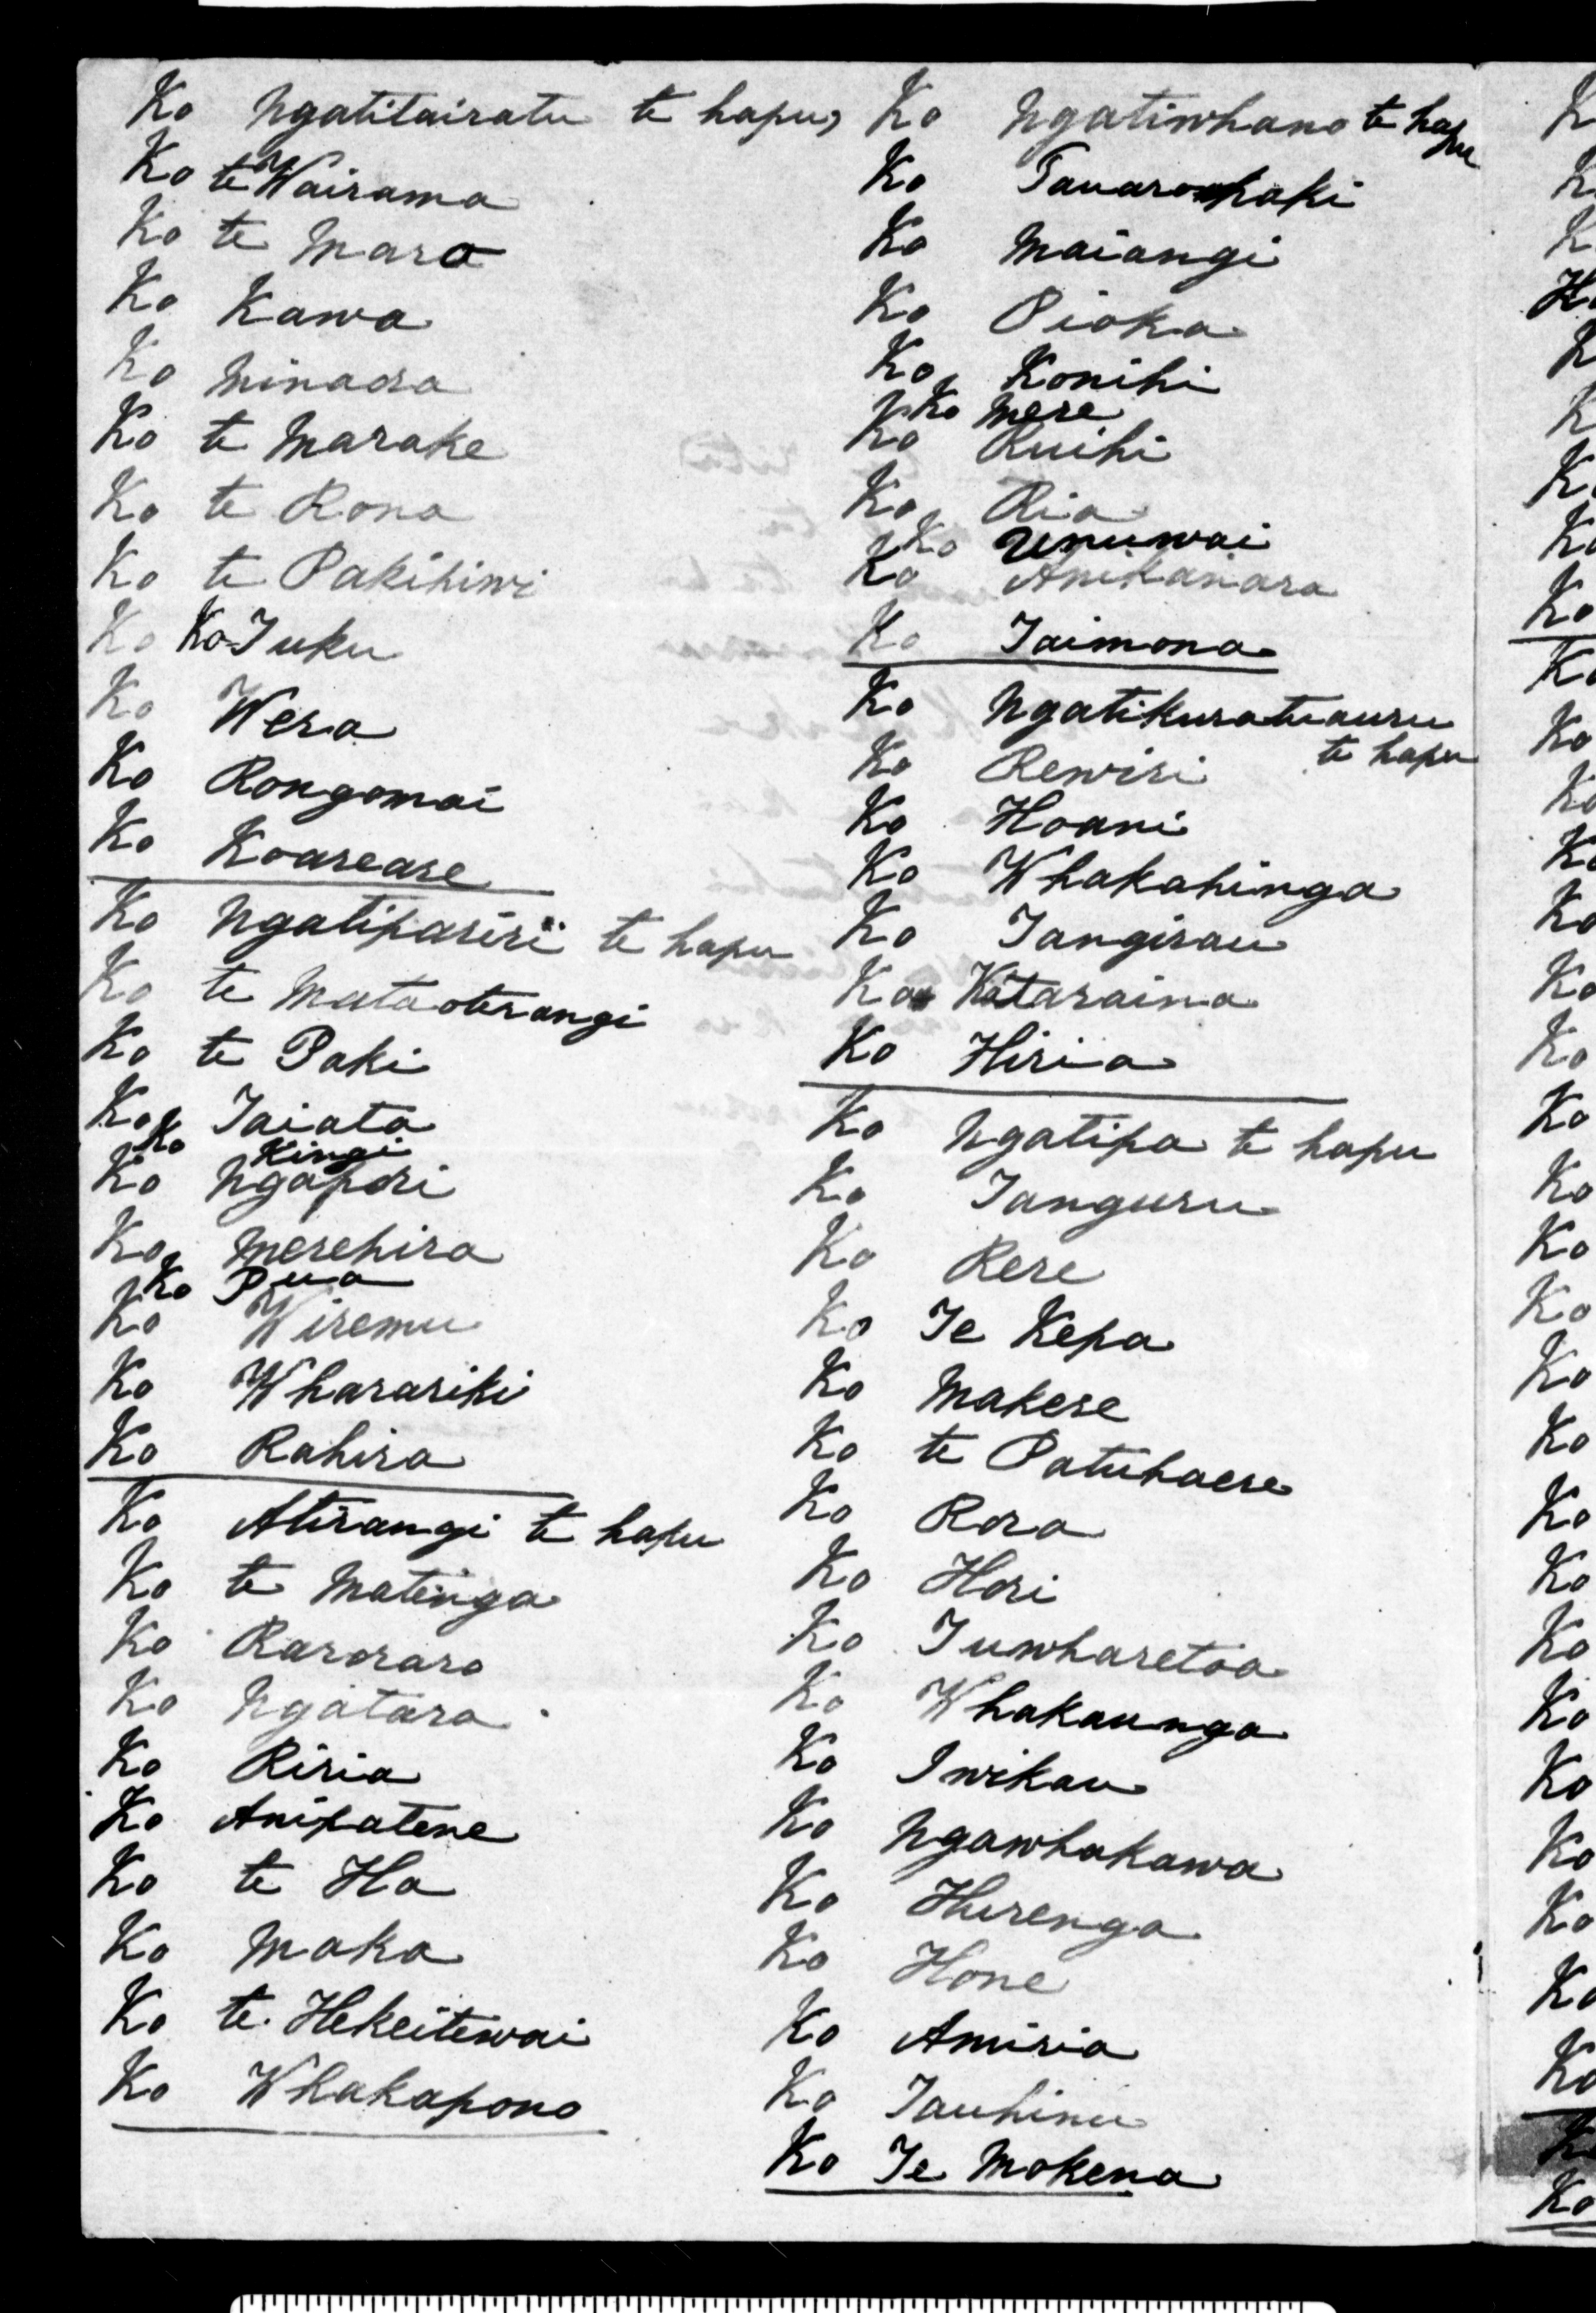 Ko Ngatitairatu te hapu,
Ko te Wairama
Ko te Mara
Ko Kawa
Ko Ninaora
Ko te Marake
Ko te Rona
Ko te Pakihiwi
Ko Ko Tuku
Ko Wera
Ko Rongomai
Ko Koareare
Ko Ngatipariri te hapu
Ko te Mataoterangi
Ko te Paki
Ko Taiata
Ko Kingi
Ko Ngapori
Ko Merehira
Ko Pua
Ko Wiremu
Ko Wharariki
Ko Rahira
Ko Atirangi te hapu
Ko te Matenga
Ko Raroraro
Ko Ngatara
Ko Riria
Ko Anipatene
Ko te Ha
Ko Maka
Ko te Hekeitewai
Ko Whakapono
Ko Ngatiwhano te hapu
Ko
Ko Maiangi
Ko Pioka
Ko Konihi
Ko Mere
Ko Ruihi
Ko Ria
Ko Unuwai
Ko Anikanara
Ko Taimona
Ko Ngatikuratuauru
te hapu
Ko Rewiri
Ko Hoani
Ko Whakahinga
Ko Tangirau
Ko Kataraina
Ko Hiria
Ko Ngatipa te hapu
Ko Tanguru
Ko Rere
Ko Te Kepa
Ko Makere
Ko te Patuhaere
Ko Rora
Ko Hori
Ko Tuwharetoa
Ko Whakaunga
Ko Iwikau
Ko Ngawhakawa
Ko Hurenga
Ko Hone
Ko Amiria
Ko Tauhinu
Ko Te Mokena